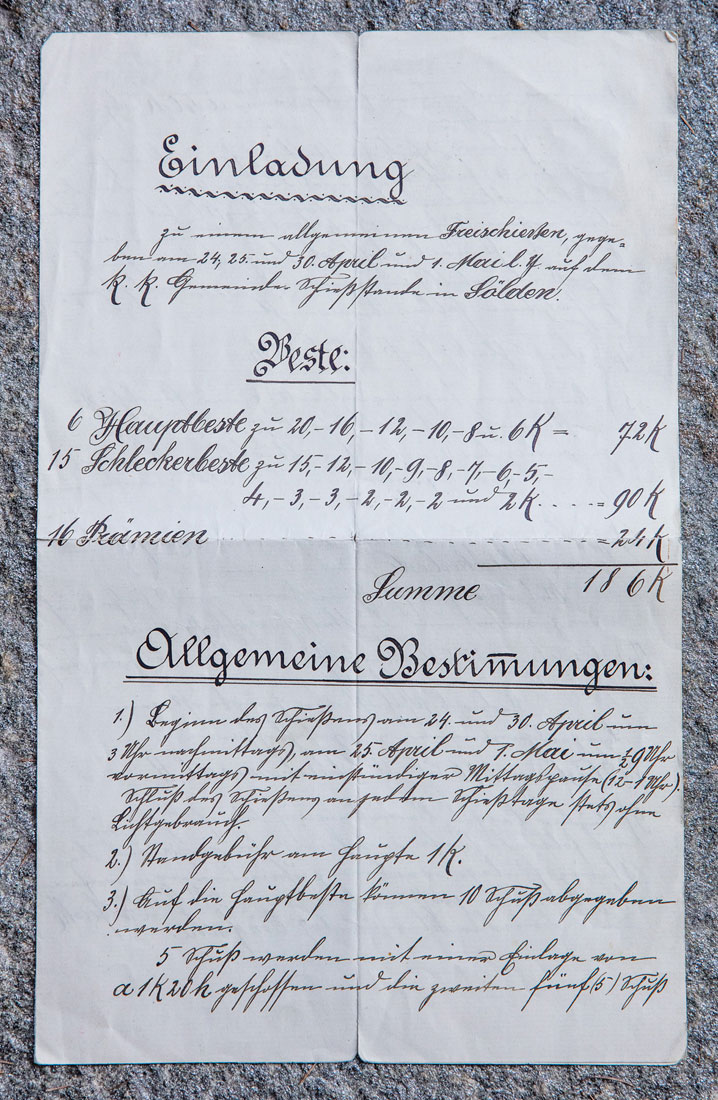 Einladung
zu einem allgemeinen Freischießen, gege-
ben am 24, 25. und 30. April und 1. Mai l. J. auf dem
k. k. Gemeinde-Schießstande in Sölden.
Beste:
6 Hauptbeste zu 20,-16,-12,-10,-8 u. 6 K = 72 K
15 Schleckerbeste zu 15,-12,-10,-9,-8,-7,-6,-5,-
4,-3,-3,-2,-2,-2 und 2 K. . . . . = 90 K
16 Prämien = 24 K
Summe 186 K
Allgemeine Bestim̅ungen:
1.) Beginn des Schießens am 24. und 30. April um
3 Uhr nachmittags, am 25. April und 1. Mai um ½9 Uhr
vormittags mit einstündiger Mittagspause (12-1 Uhr).
Schluß des Schießens an jedem Schießtage stets ohne
Lichtgebrauch.
2.) Standgebühr am Haupte 1 K.
3.) Auf die Hauptbeste können 10 Schuß abgegeben
werden.
5 Schuß werden mit einer Einlage von
a 1 K 20 h geschossen und die zweiten fünf (5) Schuß